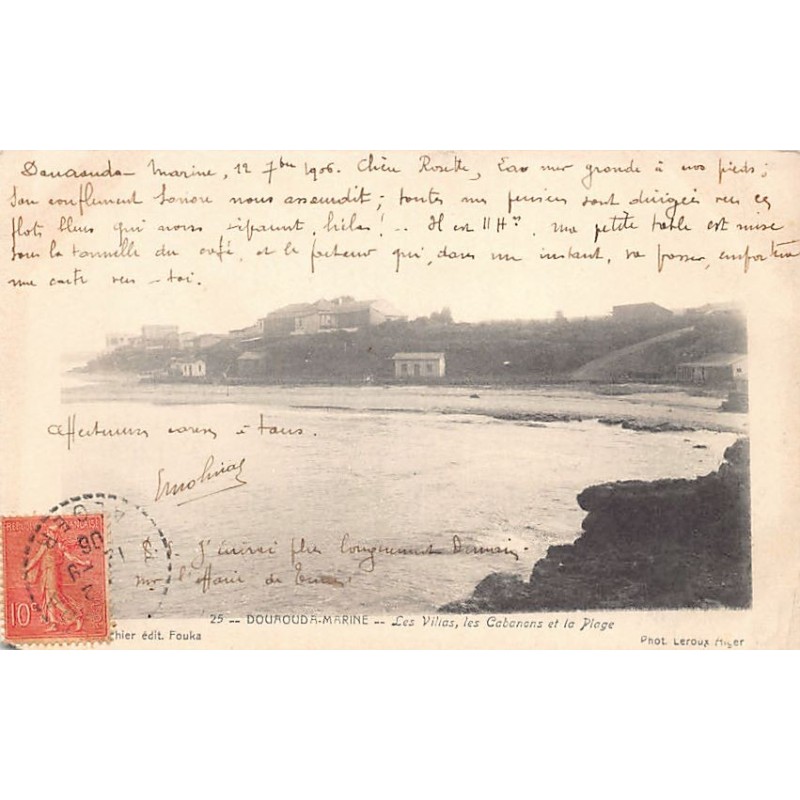 Douaouda-Marine, 12 7bre 1906. Chère Rosette, Eau mer grande à nos pieds;
Son ronflement sonore nous assourdit; toutes mes pensées sont dirigées vers ces
flots bleus qui nous séparent, hélas! .. Il est 11 Hres, ma petite table est mise
sous la tonnelle du café, et le facteur qui, dans un instant, va passer, emportera
ma carte vers toi.
Affectueuses caresses à tous.
EMolinas
J'écrirai plus longuement Demain
sur l'affaire de
REPUBLIQUE FRANÇAISE
10c
25 -- DOUAOUDA-MARINE -- Les Villas, les Cabanons et la Plage
chier édit. Fouka
Phot. Leroux Alger